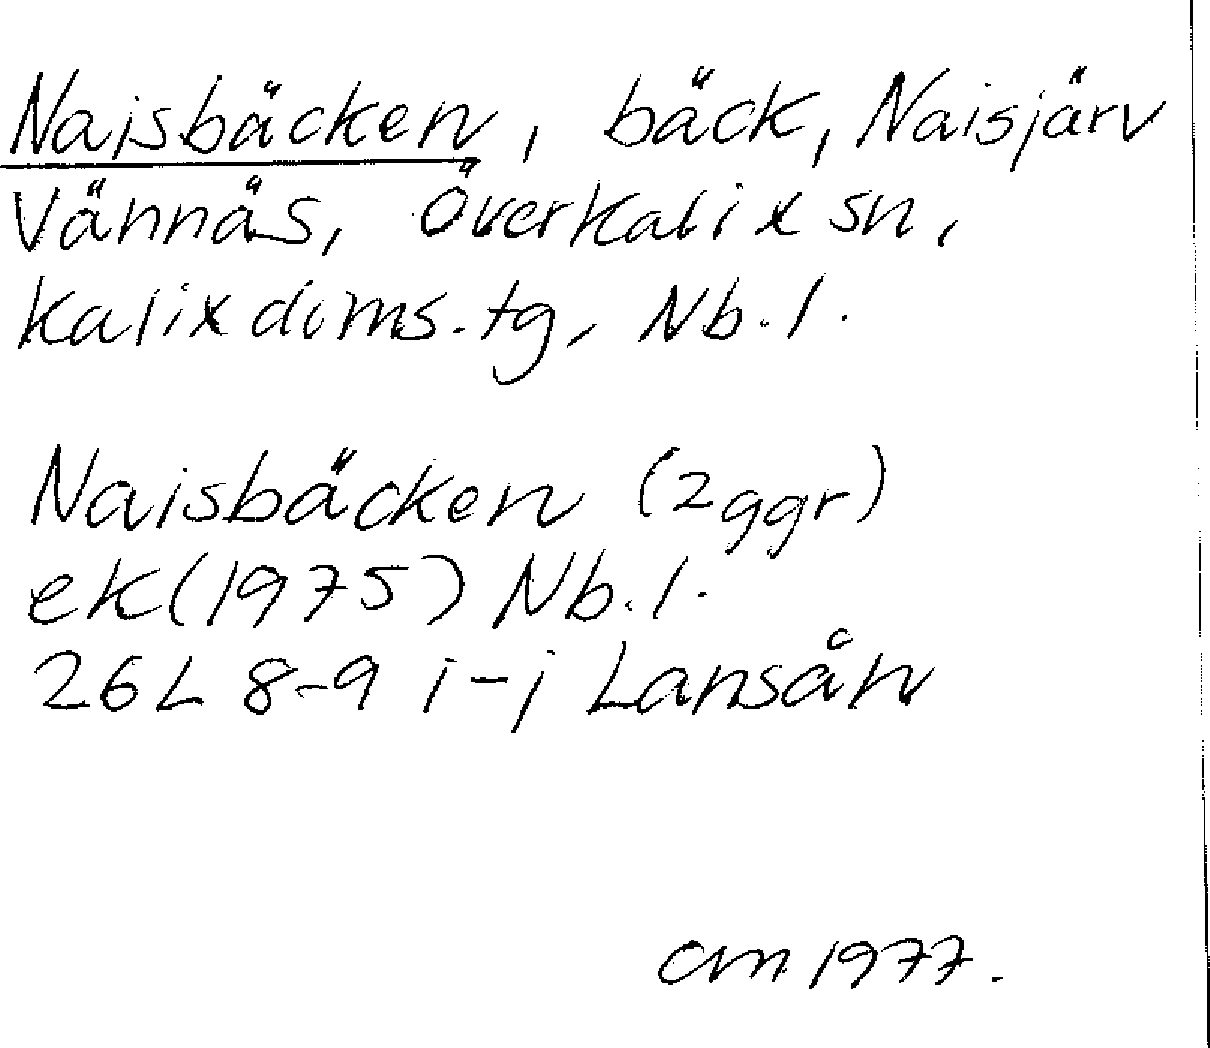 Naisbäcken, bäck, Naisjärv
Vännäs, Överkalix sn,
Kalix doms.tg, Nb.l.
Naisbäcken (2ggr)
ek(1975) Nb.l.
26L 8-9 i-j Lansån
CM 1977.